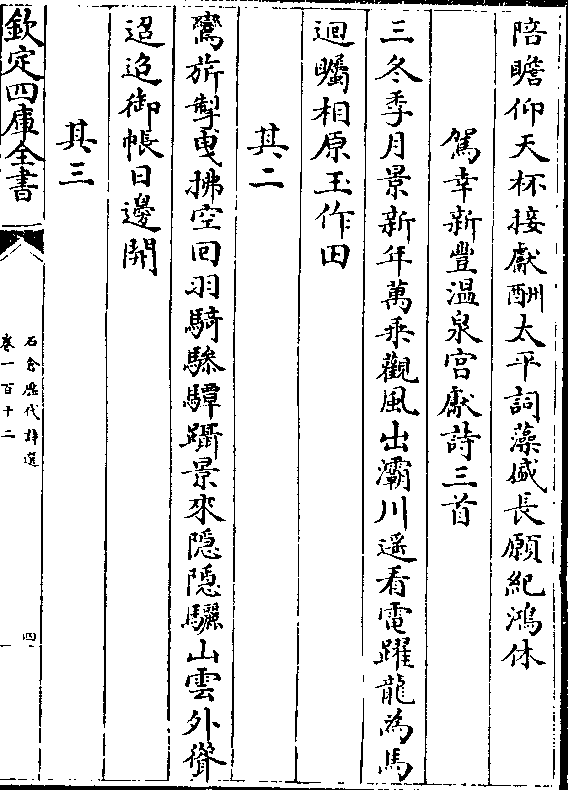 陪瞻仰天杯接獻酬太平詞藻盛長願紀鴻休
駕幸新豐温泉宫獻詩三首
三冬季月景新年萬乗觀風出灞川遥看電躍龍為馬
迴矚相原玉作田
其二
鸞旂掣曳拂空回羽騎驂驔躡景來隠隠驪山雲外聳
迢迢御帳日邊開
其三
欽定四庫全書
石倉歴代詩選
卷一百十二
四